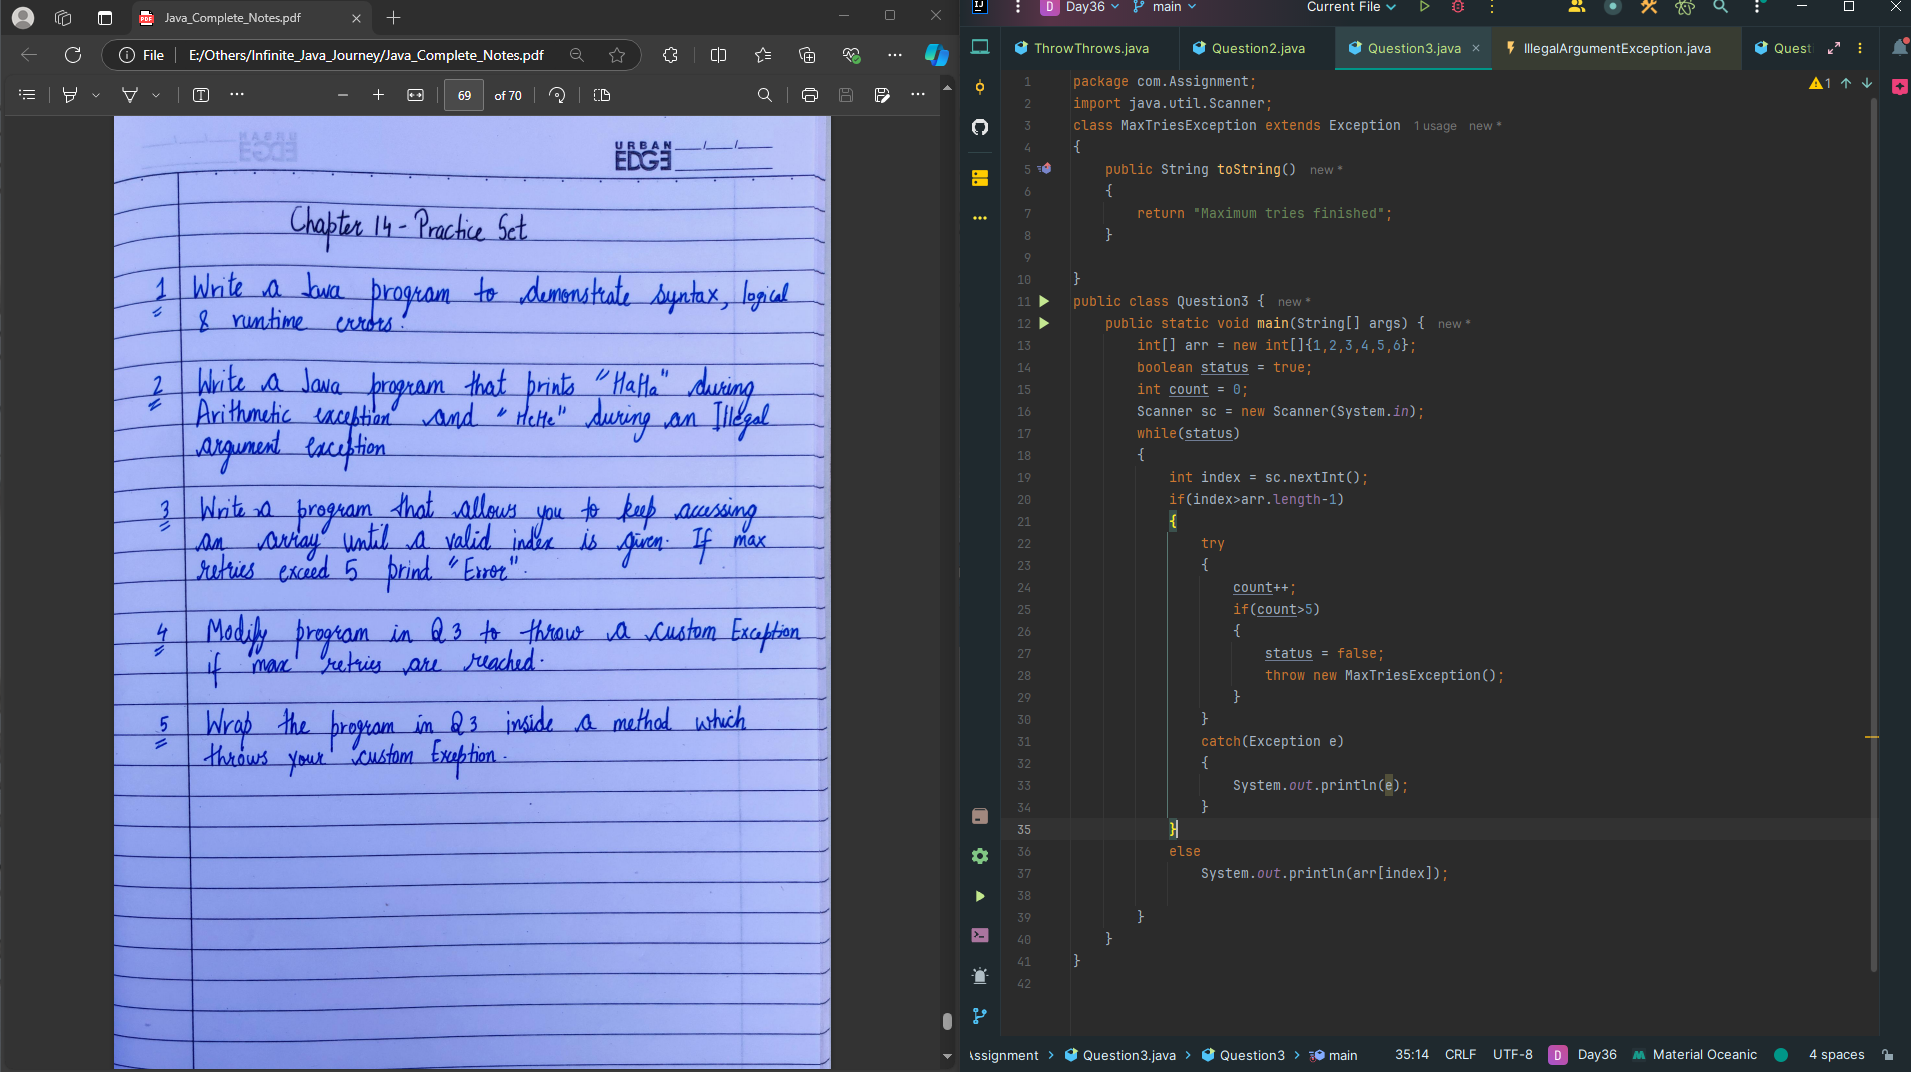 Java_Complete_Notes.pdf
File
E:/Others/Infinite_Java_Journey/Java_Complete_Notes.pdf
69 of 70
URBAN
EDGE
Chapter 14 - Practice Set
1 Write a Java program to demonstrate syntax, logical
& runtime errors.
2 Write a Java program that prints "HaHa" during
Arithmetic exception and "HeHe" during an Illegal
argument exception
3 Write a program that allows you to keep accessing
an array until a valid index is given. If max
retries exceed 5 prind "Error".
4 Modify program in Q3 to throw a custom Exception
if max retries are reached.
5 Wrap the program in Q3 inside a method which
throws your custom Exception.
IJ
D Day36 main Current File
ThrowThrows.java Question2.java Question3.java IllegalArgumentException.java Quest
1 package com.Assignment;
2 import java.util.Scanner;
3 class MaxTriesException extends Exception 1 usage new *
4 {
5 public String toString() new *
6 {
7 return "Maximum tries finished";
8 }
9
10 }
11 public class Question3 { new *
12 public static void main(String[] args) { new *
13 int[] arr = new int[]{1,2,3,4,5,6};
14 boolean status = true;
15 int count = 0;
16 Scanner sc = new Scanner(System.in);
17 while(status)
18 {
19 int index = sc.nextInt();
20 if(index>arr.length-1)
21 {
22 try
23 {
24 count++;
25 if(count>5)
26 {
27 status = false;
28 throw new MaxTriesException();
29 }
30 }
31 catch(Exception e)
32 {
33 System.out.println(e);
34 }
35 }
36 else
37 System.out.println(arr[index]);
38
39 }
40 }
41 }
42
1
Assignment > Question3.java > Question3 > main 35:14 CRLF UTF-8 D Day36 Material Oceanic 4 spaces